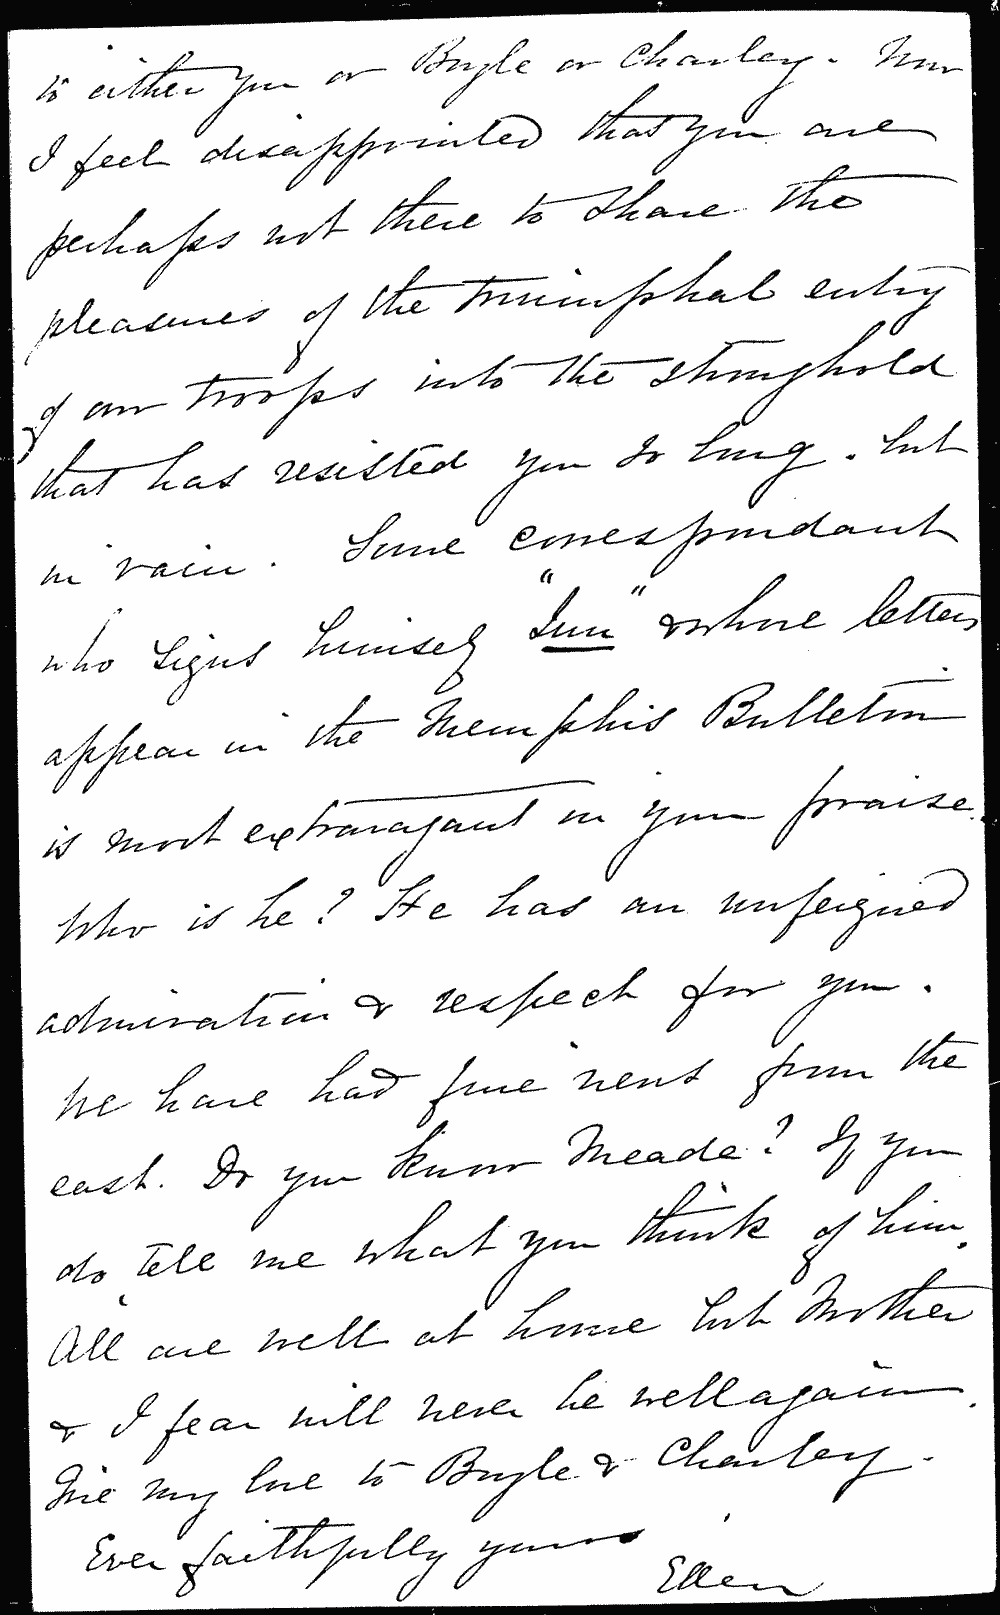 to either you or Boyle or Charley. Now
I feel disappointed that you are
perhaps not there to share the
pleasures of the triumphal entry
of our troops into the stronghold
that has resisted you so long. but
in vain. Some correspondant
who signs himself "Iun" & whose letters
appear in the Memphis Bulletin
is most extravagant in your praise.
Who is he? He has an unfeigned
admiration & respect for you.
We have had fine news from the
east. Do you know Meade? If you
do, tell me what you think of him.
All are well at home but Mother
& I fear will never be well again.
Give my love to Boyle & Charley.
Ever faithfully yours
Ellen